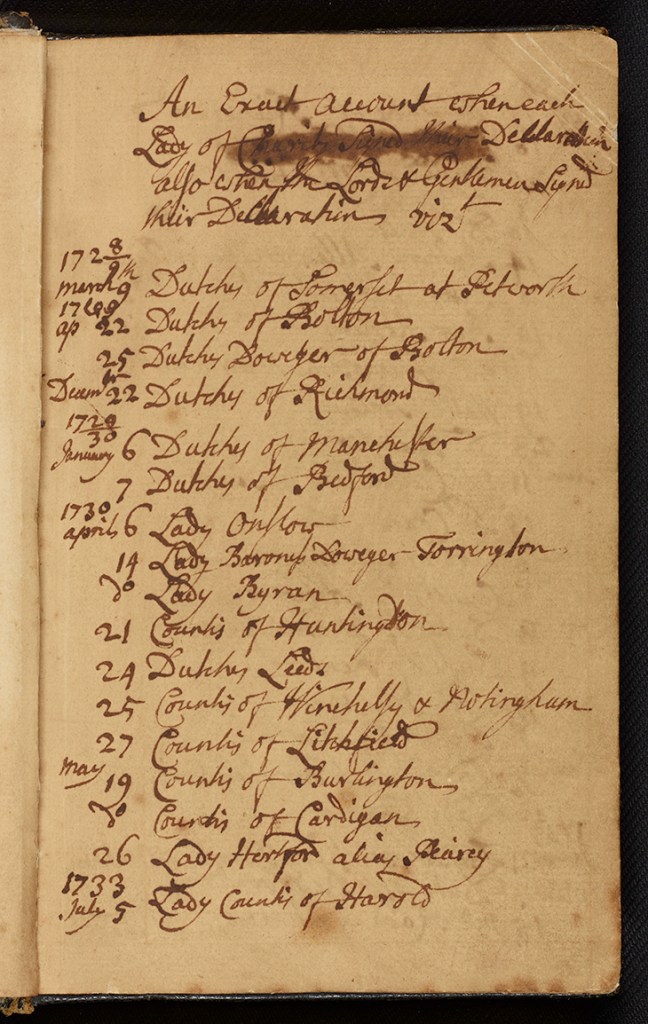 An Exact account when each
Lady of Charity Signd their Declaration
also when the Lords & Gentlemen Signd
their Declaration vizt
1728/9
march 9th Dutches of Somerset at Petworth
ap 22 Dutchs of Bolton
25 Dutchs Doweger of Bolton
Decembr 22 Dutchs of Richmond
1729/30
January 6 Dutchs of Manchester
7 Dutchs of Bedford
1730
april 6 Lady Onslow
14 Lady Barones Doweger Torrington
do Lady Byran
21 Countis of Huntingdon
24 Dutches Leeds
25 Countis of Winchelsy & Notingham
27 Countis of Litchfield
may 19 Countis of Burlington
do Countis of Cardigan
26 Lady Hertford alias Peircy
1733
July 5 Lady Countis of Harold